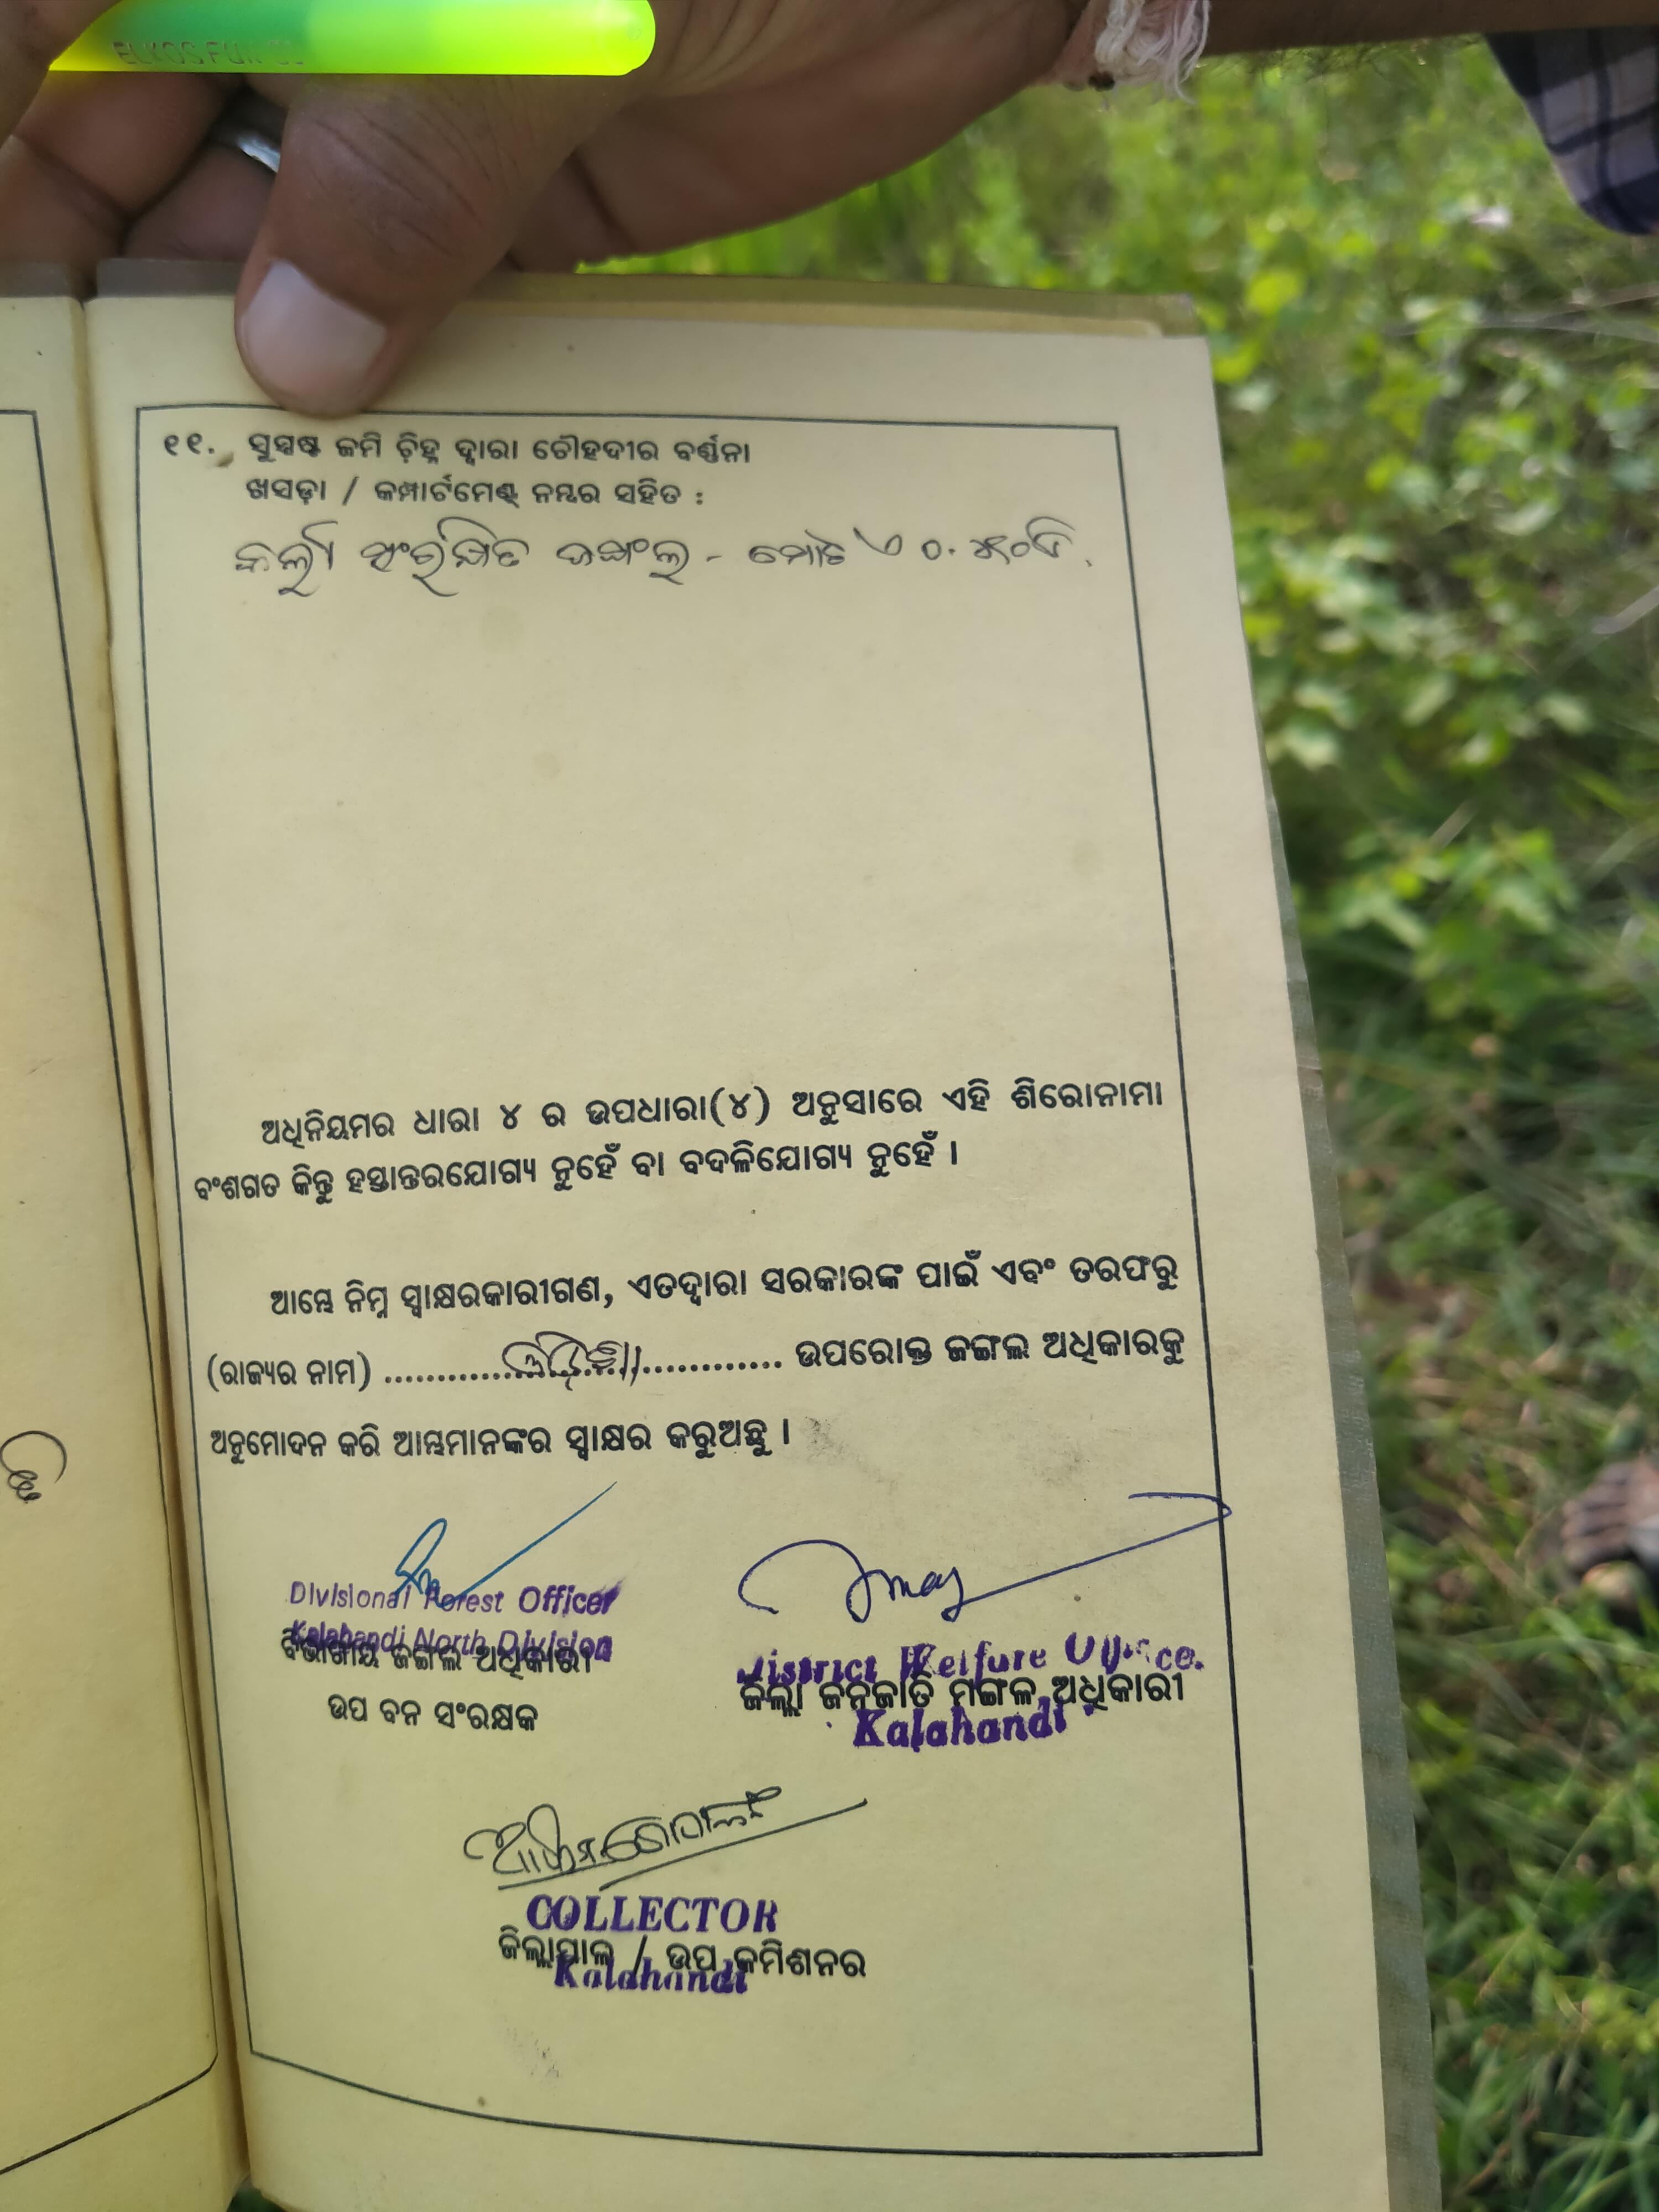 ୧୧. ସୁସ୍ପଷ୍ଟ ଜମି ଚ଼ିହ୍ନ ଦ୍ଵାରା ଚୌହଦୀର ବର୍ଣ୍ଣନା
ଖସଡ଼ା / କମ୍ପାର୍ଟମେଣ୍ଟ୍ ନମ୍ବର ସହିତ :
ସଂରକ୍ଷିତ ଜଙ୍ଗଲ - ମୋଟ ଏ ୦.
ଅଧିନିୟମର ଧାରା ୪ ର ଉପଧାରା(୪) ଅନୁସାରେ ଏହି ଶିରୋନାମା
ବଂଶଗତ କିନ୍ତୁ ହସ୍ତାନ୍ତରଯୋଗ୍ୟ ନୁହେଁ ବା ବଦଳିଯୋଗ୍ୟ ନୁହେଁ ।
ଆମ୍ଭେ ନିମ୍ନ ସ୍ଵାକ୍ଷରକାରୀଗଣ, ଏତଦ୍ଵାରା ସରକାରଙ୍କ ପାଇଁ ଏବଂ ତରଫରୁ
(ରାଜ୍ୟର ନାମ) ........ଓଡ଼ିଶା............ ଉପରୋକ୍ତ ଜଙ୍ଗଲ ଅଧିକାରକୁ
ଅନୁମୋଦନ କରି ଆମ୍ଭମାନଙ୍କର ସ୍ଵାକ୍ଷର କରୁଅଛୁ ।
Divisional Forest Officer
Kalahandi North Division
ବିଭାଗୀୟ ଜଙ୍ଗଲ ଅଧିକାରୀ
ଉପ ବନ ସଂରକ୍ଷକ
District Welfare
ଜିଲ୍ଲା ଜନଜାତି ମଙ୍ଗଳ ଅଧିକାରୀ
Kalahandi
COLLECTOR
ଜିଲ୍ଲାପାଳ / ଉପ କମିଶନର
Kalahandi